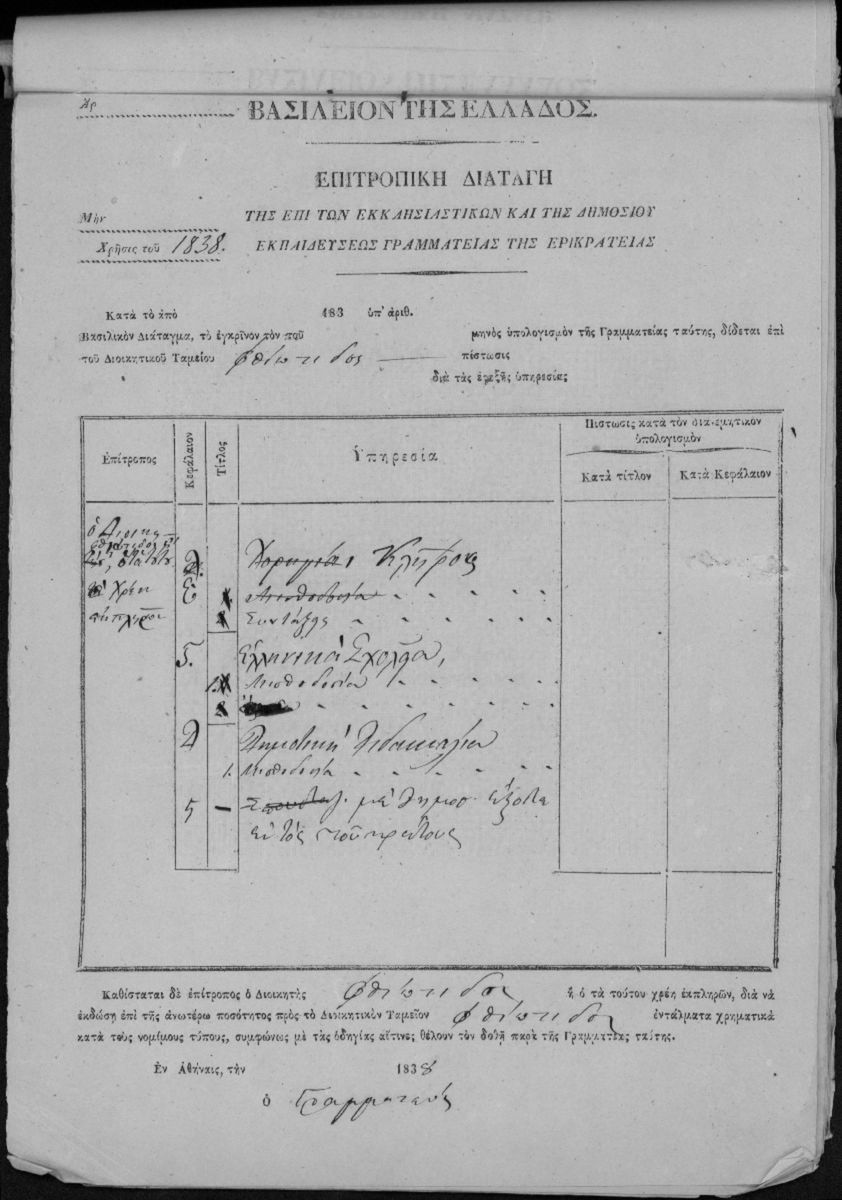 Ἀρ
ΒΑΣΙΛΕΙΟΝ ΤΗΣ ΕΛΛΑΔΟΣ.
ΕΠΙΤΡΟΠΙΚΗ ΔΙΑΤΑΓΗ
Μὴν
ΤΗΣ ΕΠΙ ΤΩΝ ΕΚΚΛΗΣΙΑΣΤΙΚΩΝ ΚΑΙ ΤΗΣ ΔΗΜΟΣΙΟΥ
Χρῆσις τοῦ 1838.
ΕΚΠΑΙΔΕΥΣΕΩΣ ΓΡΑΜΜΑΤΕΙΑΣ ΤΗΣ ΕΠΙΚΡΑΤΕΙΑΣ
Κατὰ τὸ ἀπὸ 183 ὑπ' ἀριθ.
Βασιλικὸν Διάταγμα, τὸ ἐγκρῖνον τὸν τοῦ μηνὸς ὑπολογισμὸν τῆς Γραμματείας ταύτης, δίδεται ἐπὶ
τοῦ Διοικητικοῦ Ταμείου Φθιώτιδος πίστωσις
διὰ τὰς ἑμεξῆς ὑπηρεσίας
Ἐπίτροπος
Κεφάλαιον
Τίτλος
Ὑπηρεσία
Πίστωσις κατὰ τὸν διανεμητικὸν
ὑπολογισμὸν
Κατὰ τίτλον
Κατὰ Κεφάλαιον
ὁ Διοικη
Φθιώτιδος
2 Κλῆρος
Ε Μισθοδοσία
Συντάξεις
5. Ἑλληνικὰ Σχολεῖα,
1. Μισθοδοσία
2 Δημοτικὴ Διδασκαλία
1. Μισθοδοσία
5 – μὲ δημοσ. ἔξοδα
ἐκτὸς τοῦ κράτους
Καθίσταται δὲ ἐπίτροπος ὁ Διοικητὴς Φθιώτιδος ἢ ὁ τὰ τούτου χρέη ἐκπληρῶν, διὰ νὰ
ἐκδώσῃ ἐπὶ τῆς ἀνωτέρω ποσότητος πρὸς τὸ Διοικητικὸν Ταμεῖον Φθιώτιδος ἐντάλματα χρηματικὰ
κατὰ τοὺς νομίμους τύπους, συμφώνως μὲ τὰς ὁδηγίας αἵτινες θέλουν τὸν δοθῆ παρὰ τῆς Γραμματείας ταύτης.
Ἐν Ἀθήναις, τὴν 1838
ὁ Γραμματεὺς